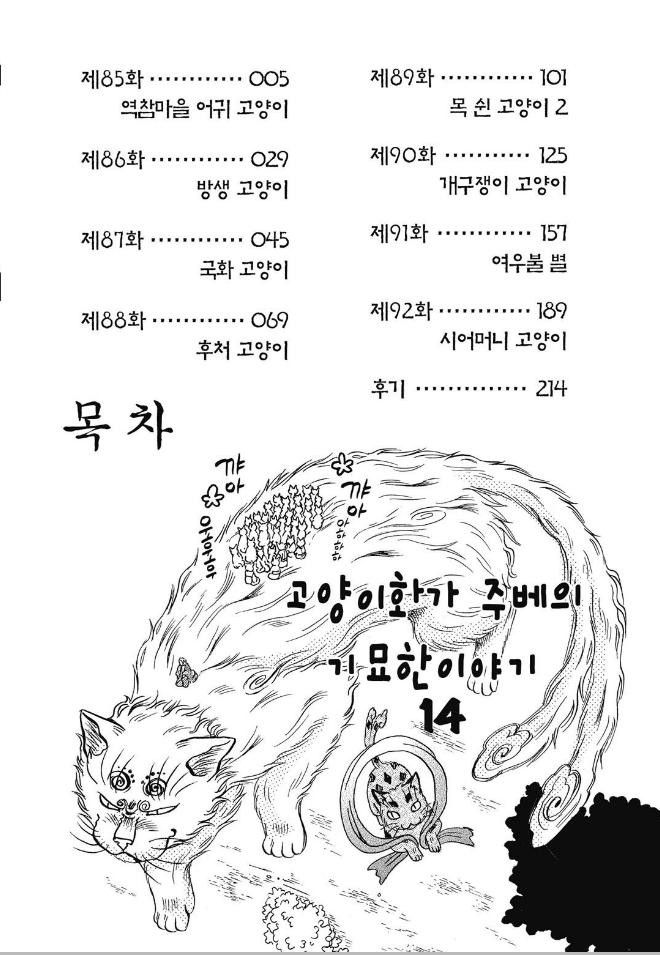 제85화 ············ 005
역참마을 어귀 고양이
제86화 ············ 029
방생 고양이
제87화 ············ 045
국화 고양이
제88화 ············ 069
후처 고양이
제89화 ············ 101
목 쉰 고양이 2
제90화 ··········· 125
개구쟁이 고양이
제91화 ············ 157
여우불 별
제92화 ············ 189
시어머니 고양이
후기 ·············· 214
목 차
꺄아
꺄아
와하하하
고양이화가 주베의
기묘한이야기
14